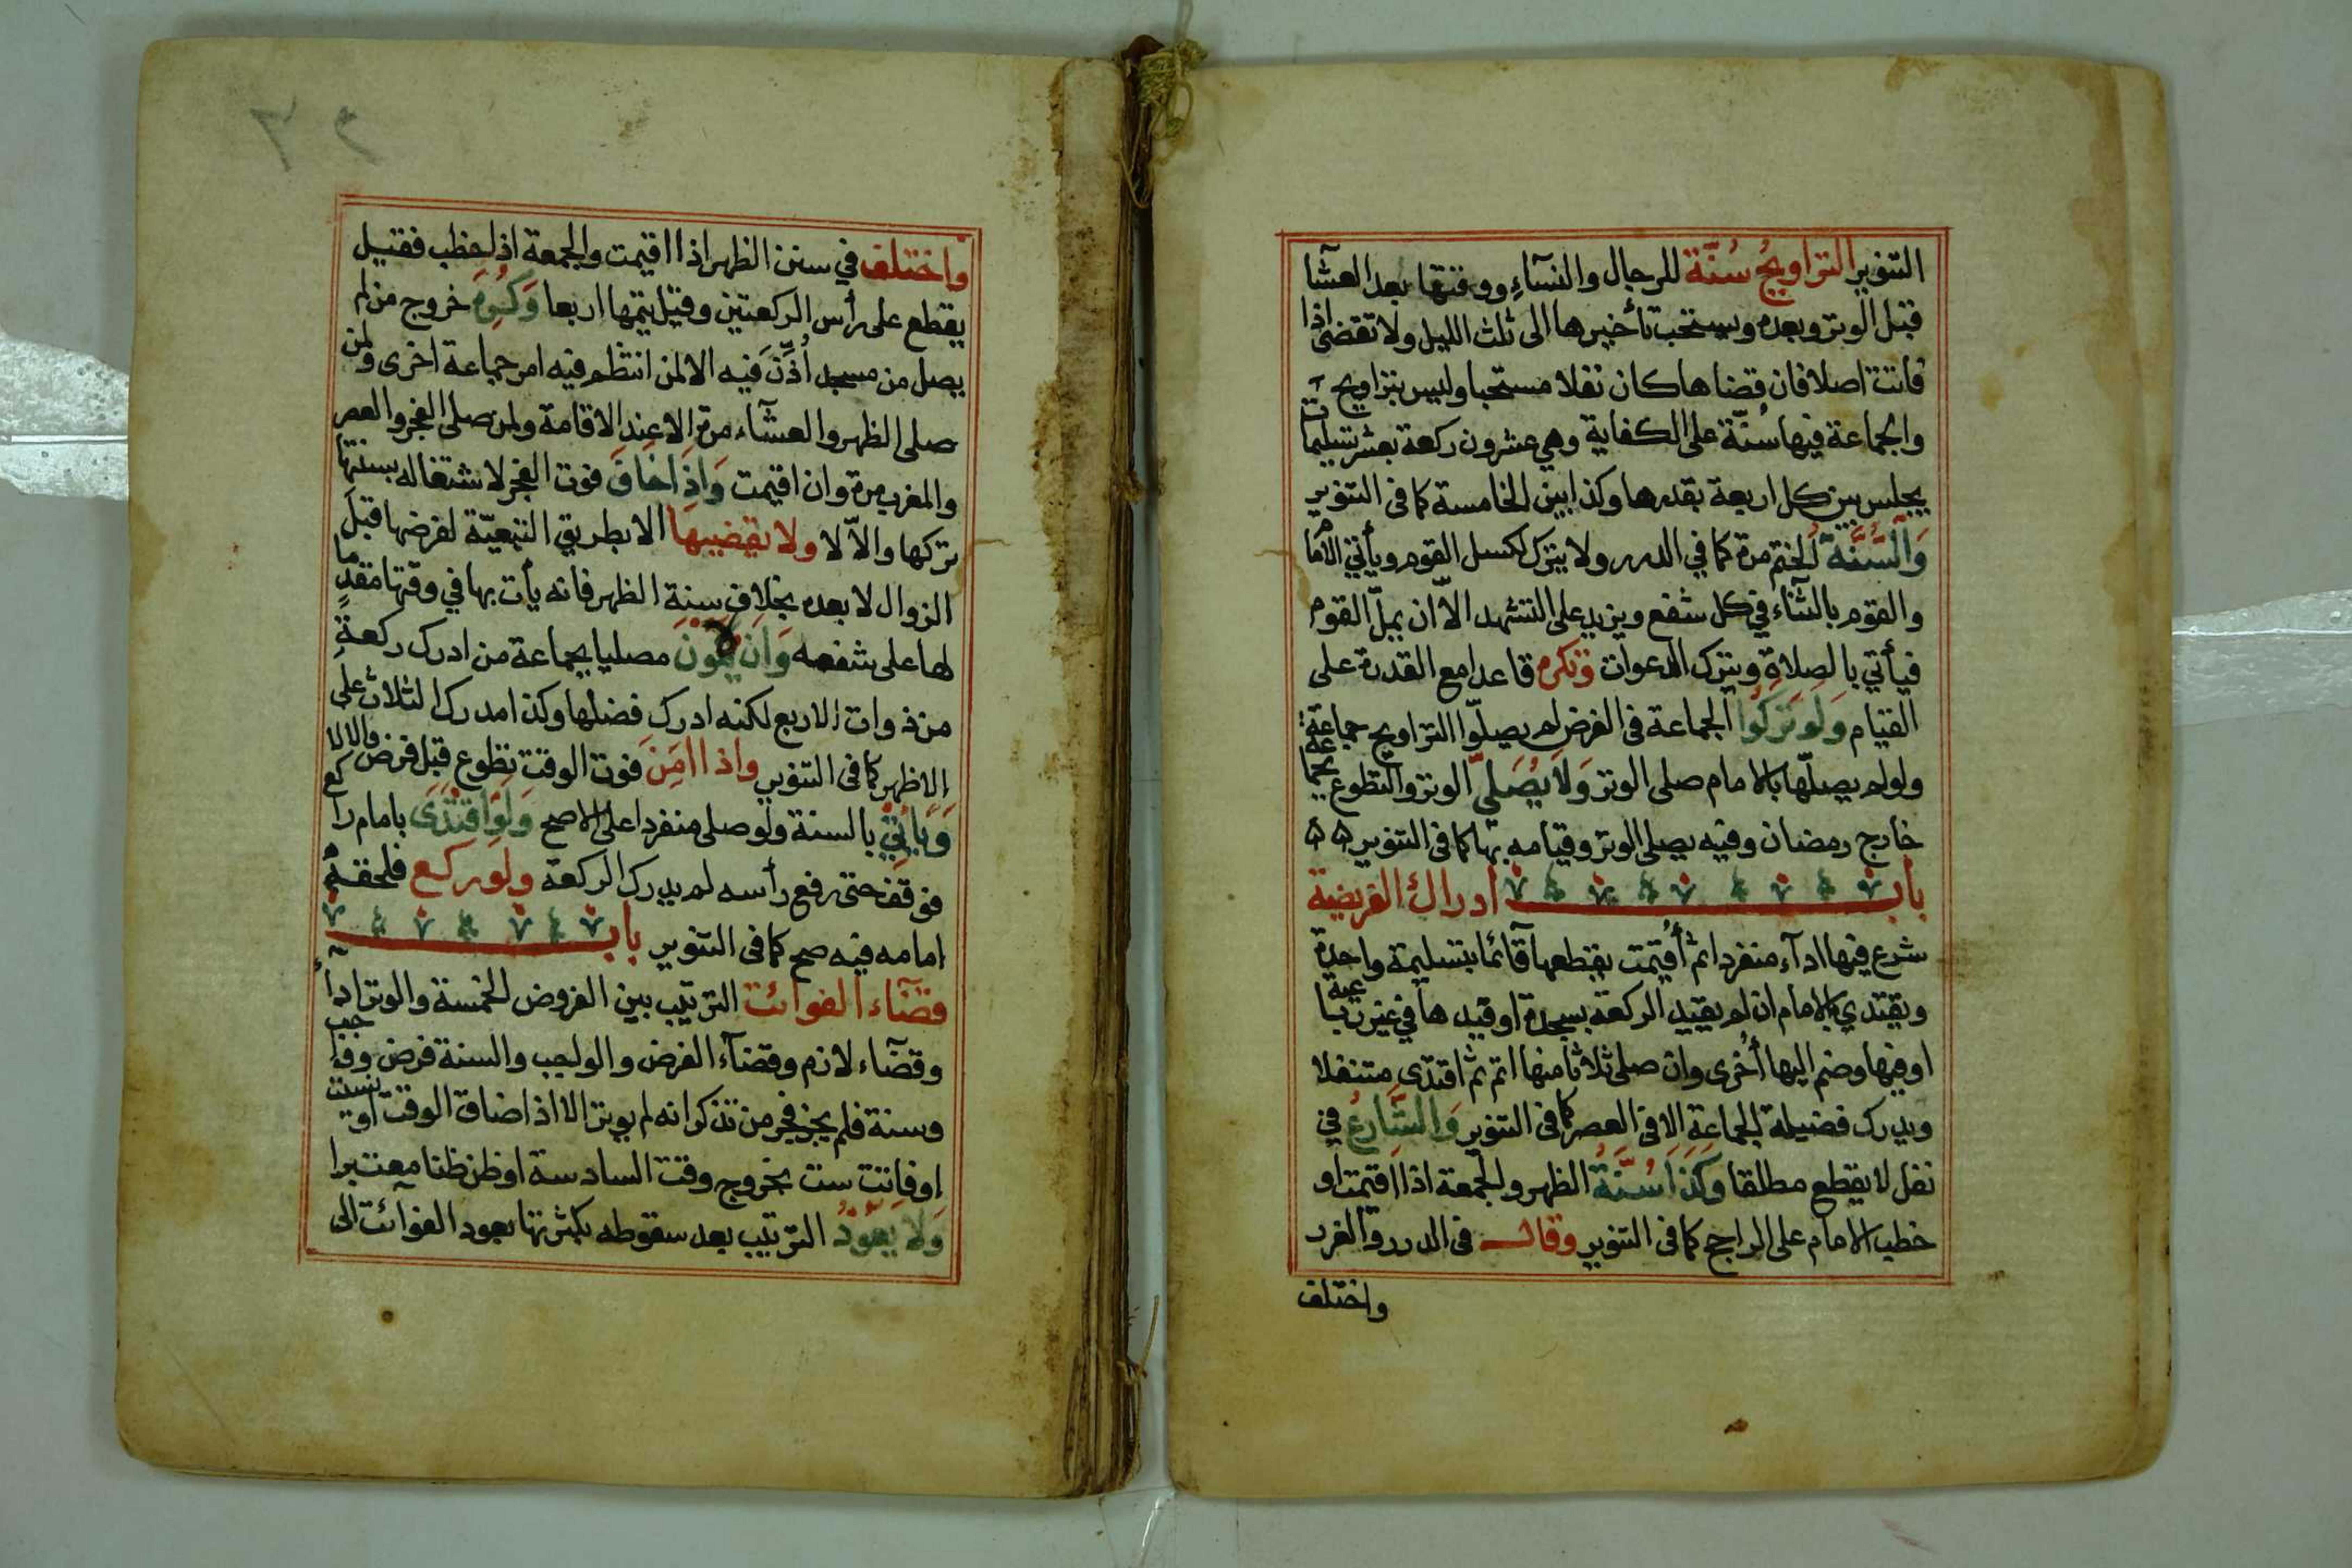 التنوير التراويحُ سُنّة للرجال والنسآءِ ووقتها بعد العشآ
قبل الوتر وبعده ويستحب تأخيرها الى ثلث الليل ولا تقضى اذا
فاتت اصلا فان قضاها كان نفلا مستحبا وليس بتراويح
والجماعة فيها سُنّة على الكفاية وهي عشرون ركعة بعشر تسليمات
يجلس بين كل اربعة بقدرها وكذا بين الخامسة كما فى التنوير
وَالسُّنَّةُ الختم مرة كما في الدرر ولا يترك لكسل القوم ويأتي الامام
والقوم بالثناء في كل شفع ويزيد على التشهد الاّ ان يملّ القوم
فيأتي بالصلاة ويترك الدعوات وتكره قاعدا مع القدرة على
القيام وَلَو تَرَكُوا الجماعة فى الفرض لم يصلّوا التراويح جماعة
ولو لم يصلّها بالامام صلى الوتر وَلَا يُصَلّي الوتر والتطوع بجماعة
خارج رمضان وفيه يصلى الوتر وقيامه بها كما فى التنوير ۵۵
باب ادراك الفريضة
شرع فيها ادآء منفردا ثم أُقيمت يقطعها قآئما بتسليمة واحدة
ويقتدي بالامام ان لم يقيد الركعة بسجدة او قيدها في غير رباعية
او فيها وضم اليها أُخرى وان صلى ثلاثا منها اتم ثم اقتدى متنفلا
ويدرك فضيلة الجماعة الا فى العصر كما فى التنوير وَالشَّارِعُ في
نفل لا يقطع مطلقا وَكَذَا سُنَّةُ الظهر والجمعة اذا اقيمت او
خطب الامام على الراجح كما فى التنوير وقال فى الدرر والغرر
واختلف
واختلف في سنن الظهر اذا اقيمت والجمعة اذا خطب فقيل
يقطع على رأس الركعتين وقيل يتمها اربعا وَكُرِهَ خروج من لم
يصل من مسجد أُذّنَ فيه الا لمن انتظم فيه امر جماعة اخرى ولمن
صلى الظهر والعشآء مرة الا عند الاقامة ولمن صلى الفجر والعصر
والمغرب مرة وان اقيمت وَاِذَا خَافَ فوت الفجر لاشتغاله بسنتها
تركها والاّ لا ولا يقضيها الا بطريق التبعيّة لفرضها قبل
الزوال لا بعده بخلاف سنة الظهر فانه يأت بها في وقتها مقدما
لها على شفعه وَاَن يكون مصليا بجماعة من ادرك ركعة
من ذوات الاربع لكنه ادرك فضلها وكذا مدرك الثلاث على
الاظهر كما فى التنوير واذا امَنَ فوت الوقت تطوع قبل فرض والا لا
وَيَأتي بالسنة ولو صلى منفردا على الاصح وَلَو اقتَدَى بامام راكع
فوقف حتى رفع رأسه لم يدرك الركعة ولو ركع فلحقه
امامه فيه صح كما فى التنوير باب
قضآء الفوائت الترتيب بين الفروض الخمسة والوتر ادآء
وقضآء لازم وقضآء الفرض والواجب والسنة فرض وواجب
وسنة فلم يجز فجر من تذكر انه لم يوتر الا اذا ضاق الوقت او نسيت
او فاتت ست بخروج وقت السادسة او ظن ظنا معتبرا
وَلَا يَعُودُ الترتيب بعد سقوطه بكثرتها بعود الفوآئت الى